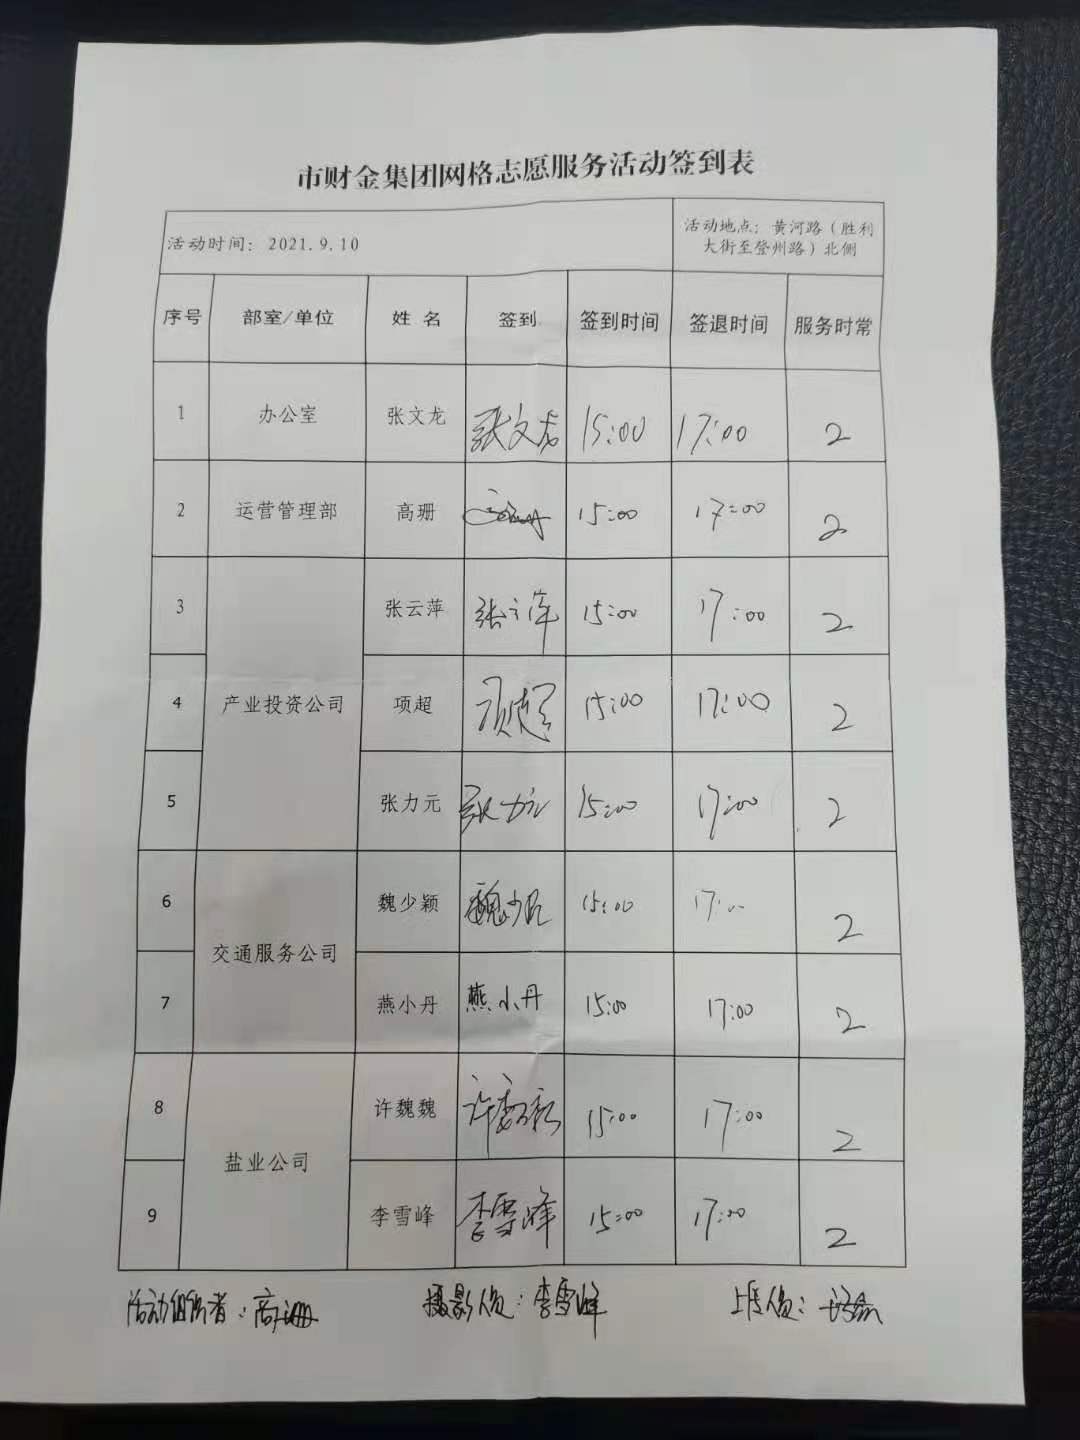 市财金集团网格志愿服务活动签到表
活动时间：2021.9.10
活动地点：黄河路（胜利
大街至登州路）北侧
序号 部室/单位 姓 名 签到 签到时间 签退时间 服务时常
1 办公室 张文龙 张文龙 15:00 17:00 2
2 运营管理部 高珊 15:00 17:00 2
3 张云萍 张云萍 15:00 17:00 2
4 产业投资公司 项超 项超 15:00 17:00 2
5 张力元 张力元 15:00 17:00 2
6 魏少颖 魏少颖 15:00 17:00 2
交通服务公司
7 燕小丹 燕小丹 15:00 17:00 2
8 许魏魏 许魏魏 15:00 17:00 2
盐业公司
9 李雪峰 李雪峰 15:00 17:00 2
活动组织者：高珊 摄影人员：李雪峰 上传人员：